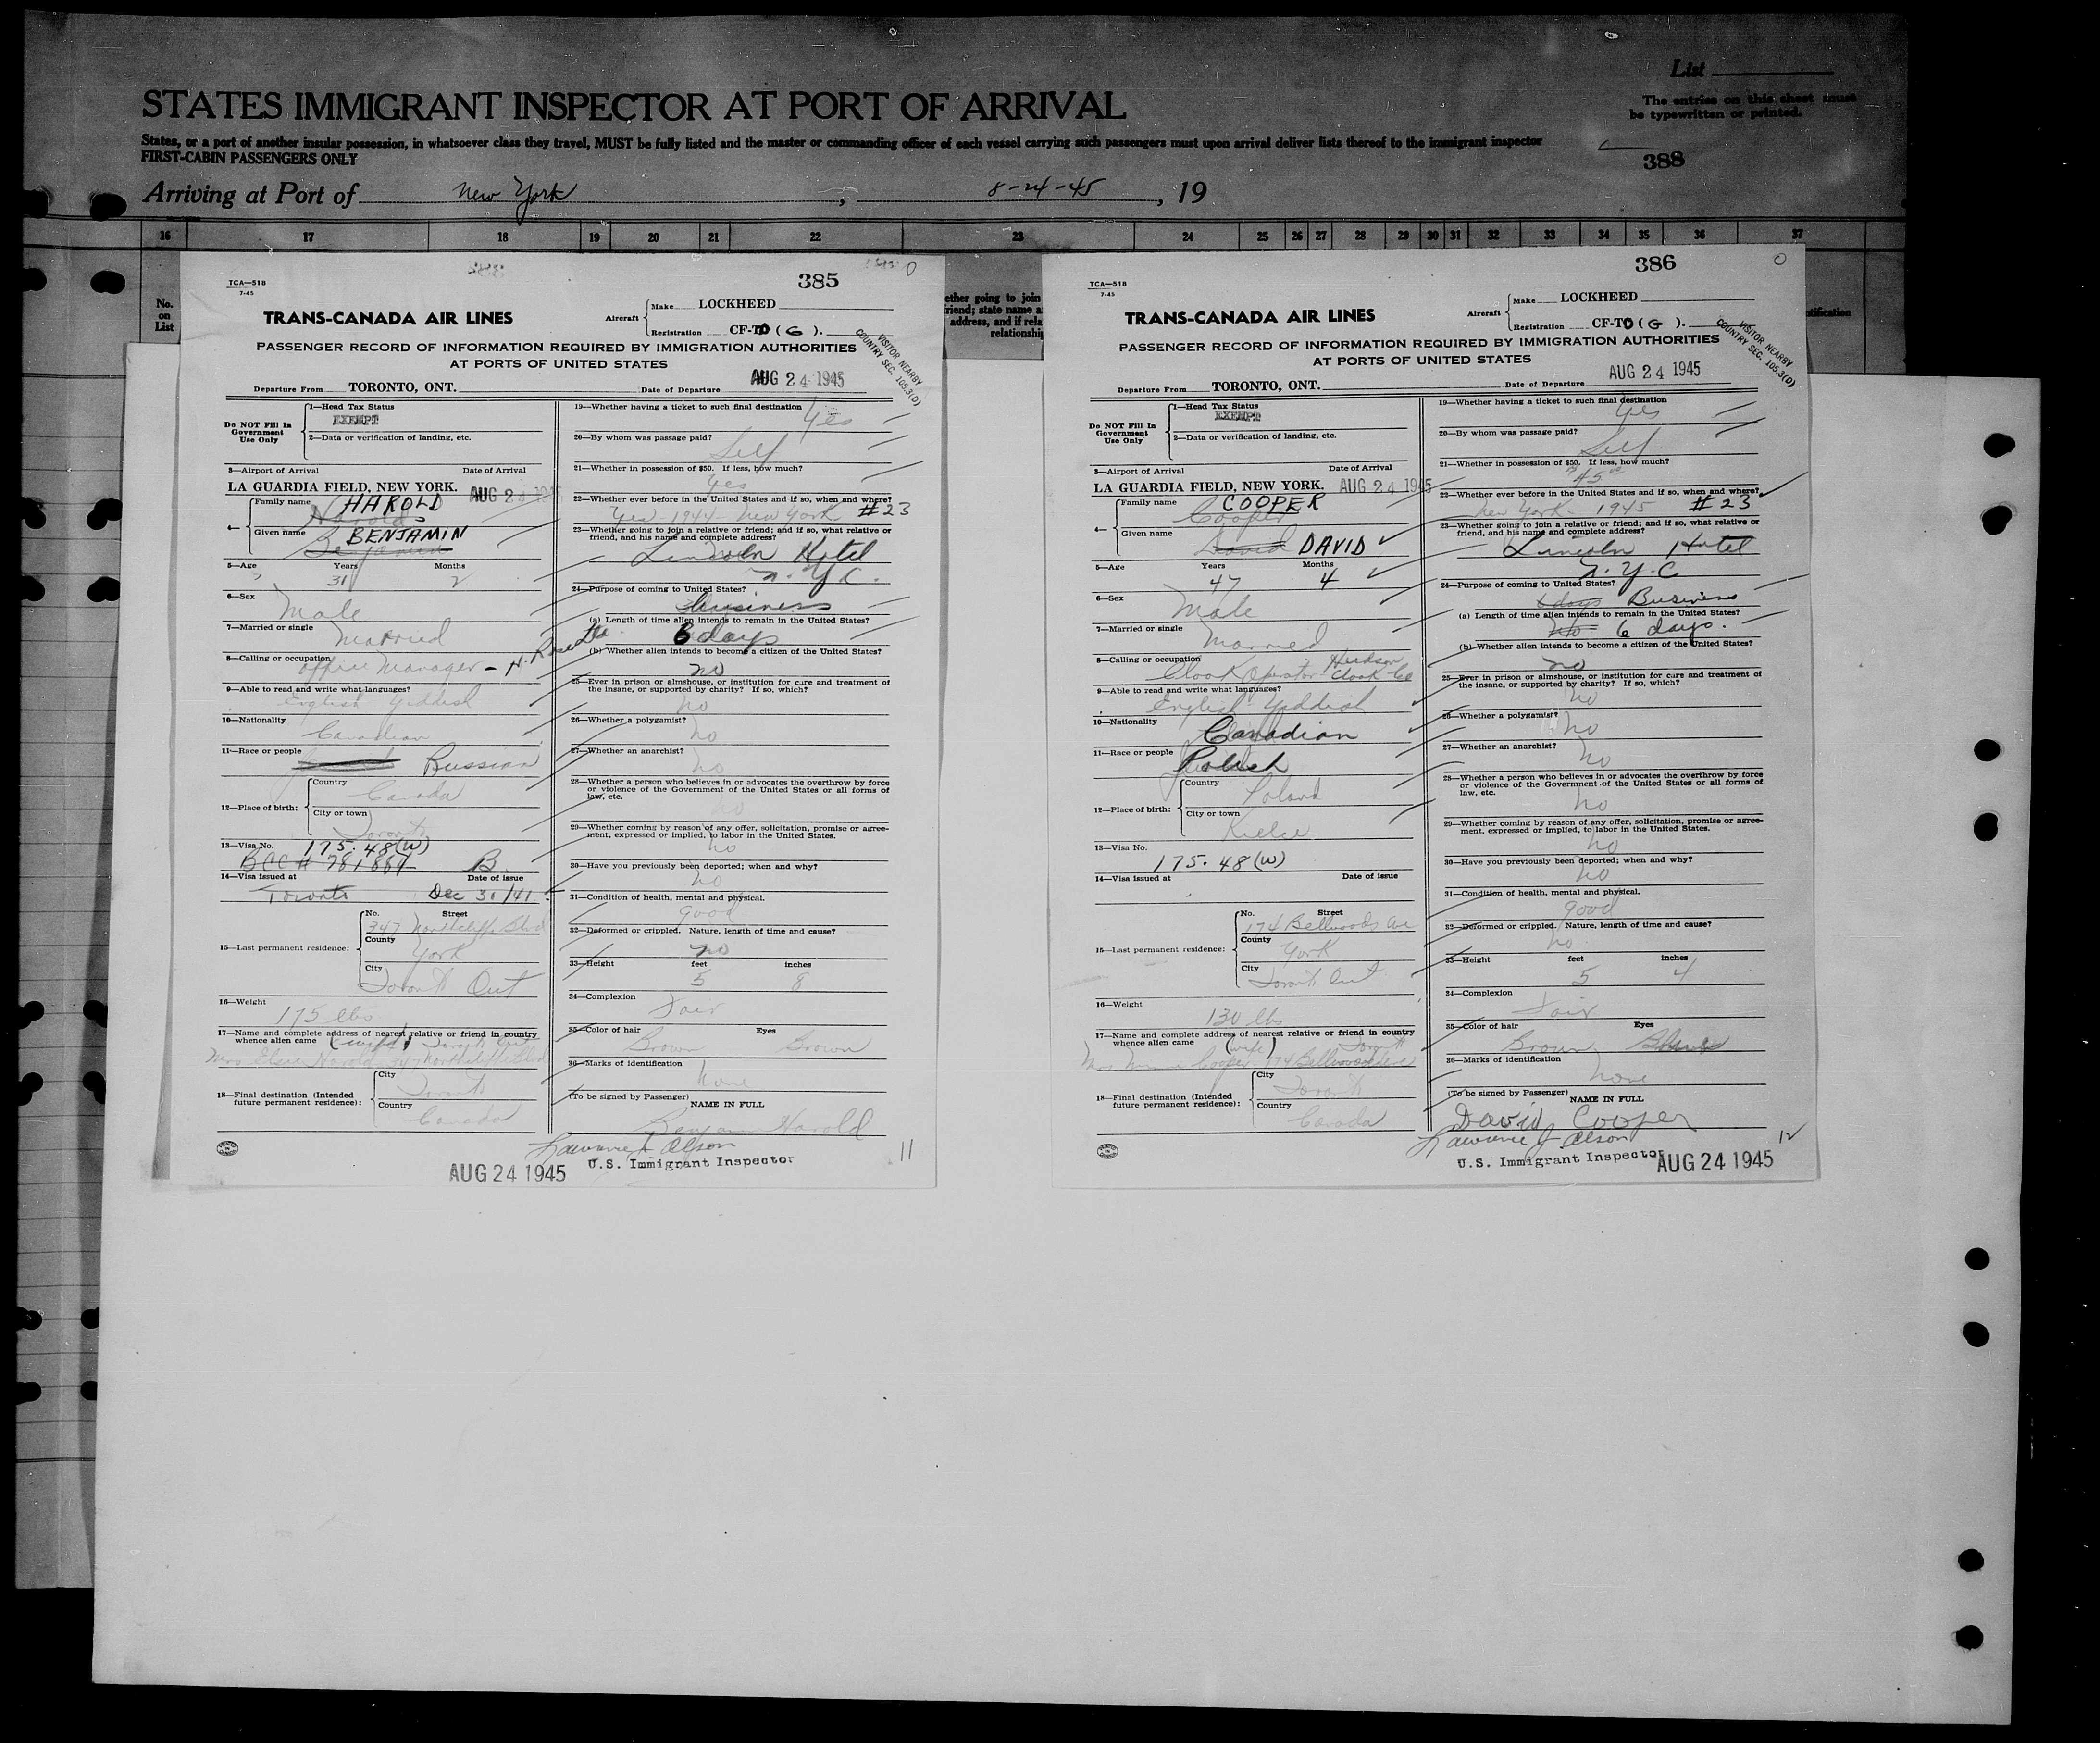 List
STATES IMMIGRANT INSPECTOR AT PORT OF ARRIVAL
The entries on this sheet must
be typewritten or printed.
States, or a port of another insular possession, in whatsoever class they travel, MUST be fully listed and the master or commanding officer of each vessel carrying such passengers must upon arrival deliver lists thereof to the immigrant inspector
FIRST-CABIN PASSENGERS ONLY
388
Arriving at Port of New York, 8-24-45, 19
16 17 18 19 20 21 22 23 24 25 26 27 28 29 30 31 32 33 34 35 36 37
No.
on
List
385
TCA—518
7-45
TRANS-CANADA AIR LINES
Aircraft
Make LOCKHEED
Registration CF-T (G).
PASSENGER RECORD OF INFORMATION REQUIRED BY IMMIGRATION AUTHORITIES
AT PORTS OF UNITED STATES
VISITOR NEARBY
COUNTRY SEC. 105.3(D)
Departure From TORONTO, ONT. Date of Departure AUG 24 1945
Do NOT Fill In
Government
Use Only
1—Head Tax Status
EXEMPT
2—Data or verification of landing, etc.
3—Airport of Arrival Date of Arrival
LA GUARDIA FIELD, NEW YORK. AUG 24 1945
4—
Family name HAROLD
Harold
Given name BENJAMIN
Benjamin
5—Age Years 31 Months 2
6—Sex Male
7—Married or single Married
8—Calling or occupation Office Manager
9—Able to read and write what languages?
English Yiddish
10—Nationality
Canadian
11—Race or people
Russian
12—Place of birth:
Country
Canada
City or town
Toronto
13—Visa No. 175.48(W)
BCC # 781884 B
14—Visa issued at Date of issue
Toronto Dec 31/41
15—Last permanent residence:
No. Street
347 Northcliffe Blvd
County
York
City
Toronto Ont
16—Weight
175 lbs
17—Name and complete address of nearest relative or friend in country
whence alien came (wife) Toronto Ont
Mrs Harold 347 Northcliffe Blvd
18—Final destination (Intended
future permanent residence):
City
Toronto
Country
Canada
19—Whether having a ticket to such final destination
Yes
20—By whom was passage paid?
Self
21—Whether in possession of $50. If less, how much?
Yes
22—Whether ever before in the United States and if so, when and where?
Yes - 1944 - New York #23
23—Whether going to join a relative or friend; and if so, what relative or
friend, and his name and complete address?
Lincoln Hotel
N.Y.C.
24—Purpose of coming to United States?
business
(a) Length of time alien intends to remain in the United States?
6 days
(b) Whether alien intends to become a citizen of the United States?
no
25—Ever in prison or almshouse, or institution for care and treatment of
the insane, or supported by charity? If so, which?
no
26—Whether a polygamist?
no
27—Whether an anarchist?
no
28—Whether a person who believes in or advocates the overthrow by force
or violence of the Government of the United States or all forms of
law, etc.
no
29—Whether coming by reason of any offer, solicitation, promise or agree-
ment, expressed or implied, to labor in the United States.
no
30—Have you previously been deported; when and why?
no
31—Condition of health, mental and physical.
good
32—Deformed or crippled. Nature, length of time and cause?
no
33—Height feet inches
5 8
34—Complexion
Fair
35—Color of hair Eyes
Brown Brown
36—Marks of identification
None
(To be signed by Passenger) NAME IN FULL
Benjamin Harold
U.S. Immigrant Inspector
AUG 24 1945
11
386
TCA—518
7-45
TRANS-CANADA AIR LINES
Aircraft
Make LOCKHEED
Registration CF-T (G).
PASSENGER RECORD OF INFORMATION REQUIRED BY IMMIGRATION AUTHORITIES
AT PORTS OF UNITED STATES
VISITOR NEARBY
COUNTRY SEC. 105.3(D)
Departure From TORONTO, ONT. Date of Departure AUG 24 1945
Do NOT Fill In
Government
Use Only
1—Head Tax Status
EXEMPT
2—Data or verification of landing, etc.
3—Airport of Arrival Date of Arrival
LA GUARDIA FIELD, NEW YORK. AUG 24 1945
4—
Family name COOPER
Cooper
Given name
David DAVID
5—Age Years 47 Months 4
6—Sex Male
7—Married or single Married
8—Calling or occupation Cloak Operator Hudson Cloak Co
9—Able to read and write what languages?
English Yiddish
10—Nationality
Canadian
11—Race or people
Polish
12—Place of birth:
Country
Poland
City or town
Kielce
13—Visa No.
175.48(W)
14—Visa issued at Date of issue
15—Last permanent residence:
No. Street
174 Bellwoods Ave
County
York
City
Toronto Ont
16—Weight
130 lbs
17—Name and complete address of nearest relative or friend in country
whence alien came (wife) Toronto
Mrs Cooper 174 Bellwoods Ave
18—Final destination (Intended
future permanent residence):
City
Toronto
Country
Canada
19—Whether having a ticket to such final destination
Yes
20—By whom was passage paid?
Self
21—Whether in possession of $50. If less, how much?
45
22—Whether ever before in the United States and if so, when and where?
New York - 1945 #23
23—Whether going to join a relative or friend; and if so, what relative or
friend, and his name and complete address?
Lincoln Hotel
N.Y.C
24—Purpose of coming to United States?
6 days Business
(a) Length of time alien intends to remain in the United States?
6 days.
(b) Whether alien intends to become a citizen of the United States?
no
25—Ever in prison or almshouse, or institution for care and treatment of
the insane, or supported by charity? If so, which?
no
26—Whether a polygamist?
no
27—Whether an anarchist?
no
28—Whether a person who believes in or advocates the overthrow by force
or violence of the Government of the United States or all forms of
law, etc.
no
29—Whether coming by reason of any offer, solicitation, promise or agree-
ment, expressed or implied, to labor in the United States.
no
30—Have you previously been deported; when and why?
no
31—Condition of health, mental and physical.
good
32—Deformed or crippled. Nature, length of time and cause?
no
33—Height feet inches
5 4
34—Complexion
Fair
35—Color of hair Eyes
Brown
36—Marks of identification
None
(To be signed by Passenger) NAME IN FULL
David Cooper
U.S. Immigrant Inspector AUG 24 1945
12